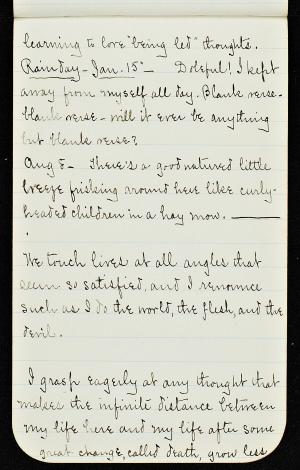 learning to love "being led" thoughts.
Rainday - Jan. 15 - Doleful! I kept
away from myself all day. Blank verse -
blank verse - will it ever be anything
but blank verse?
Aug 8 - There's a good natured little
breeze frisking around here like curly-
headed children in a hay mow. ———
We touch lives at all angles that
seem so satisfied, and I renounce
such as I do the world, the flesh, and the
devil.
I grasp eagerly at any thought that
makes the infinite distance between
my life here and my life after some
great change, called death, grow less